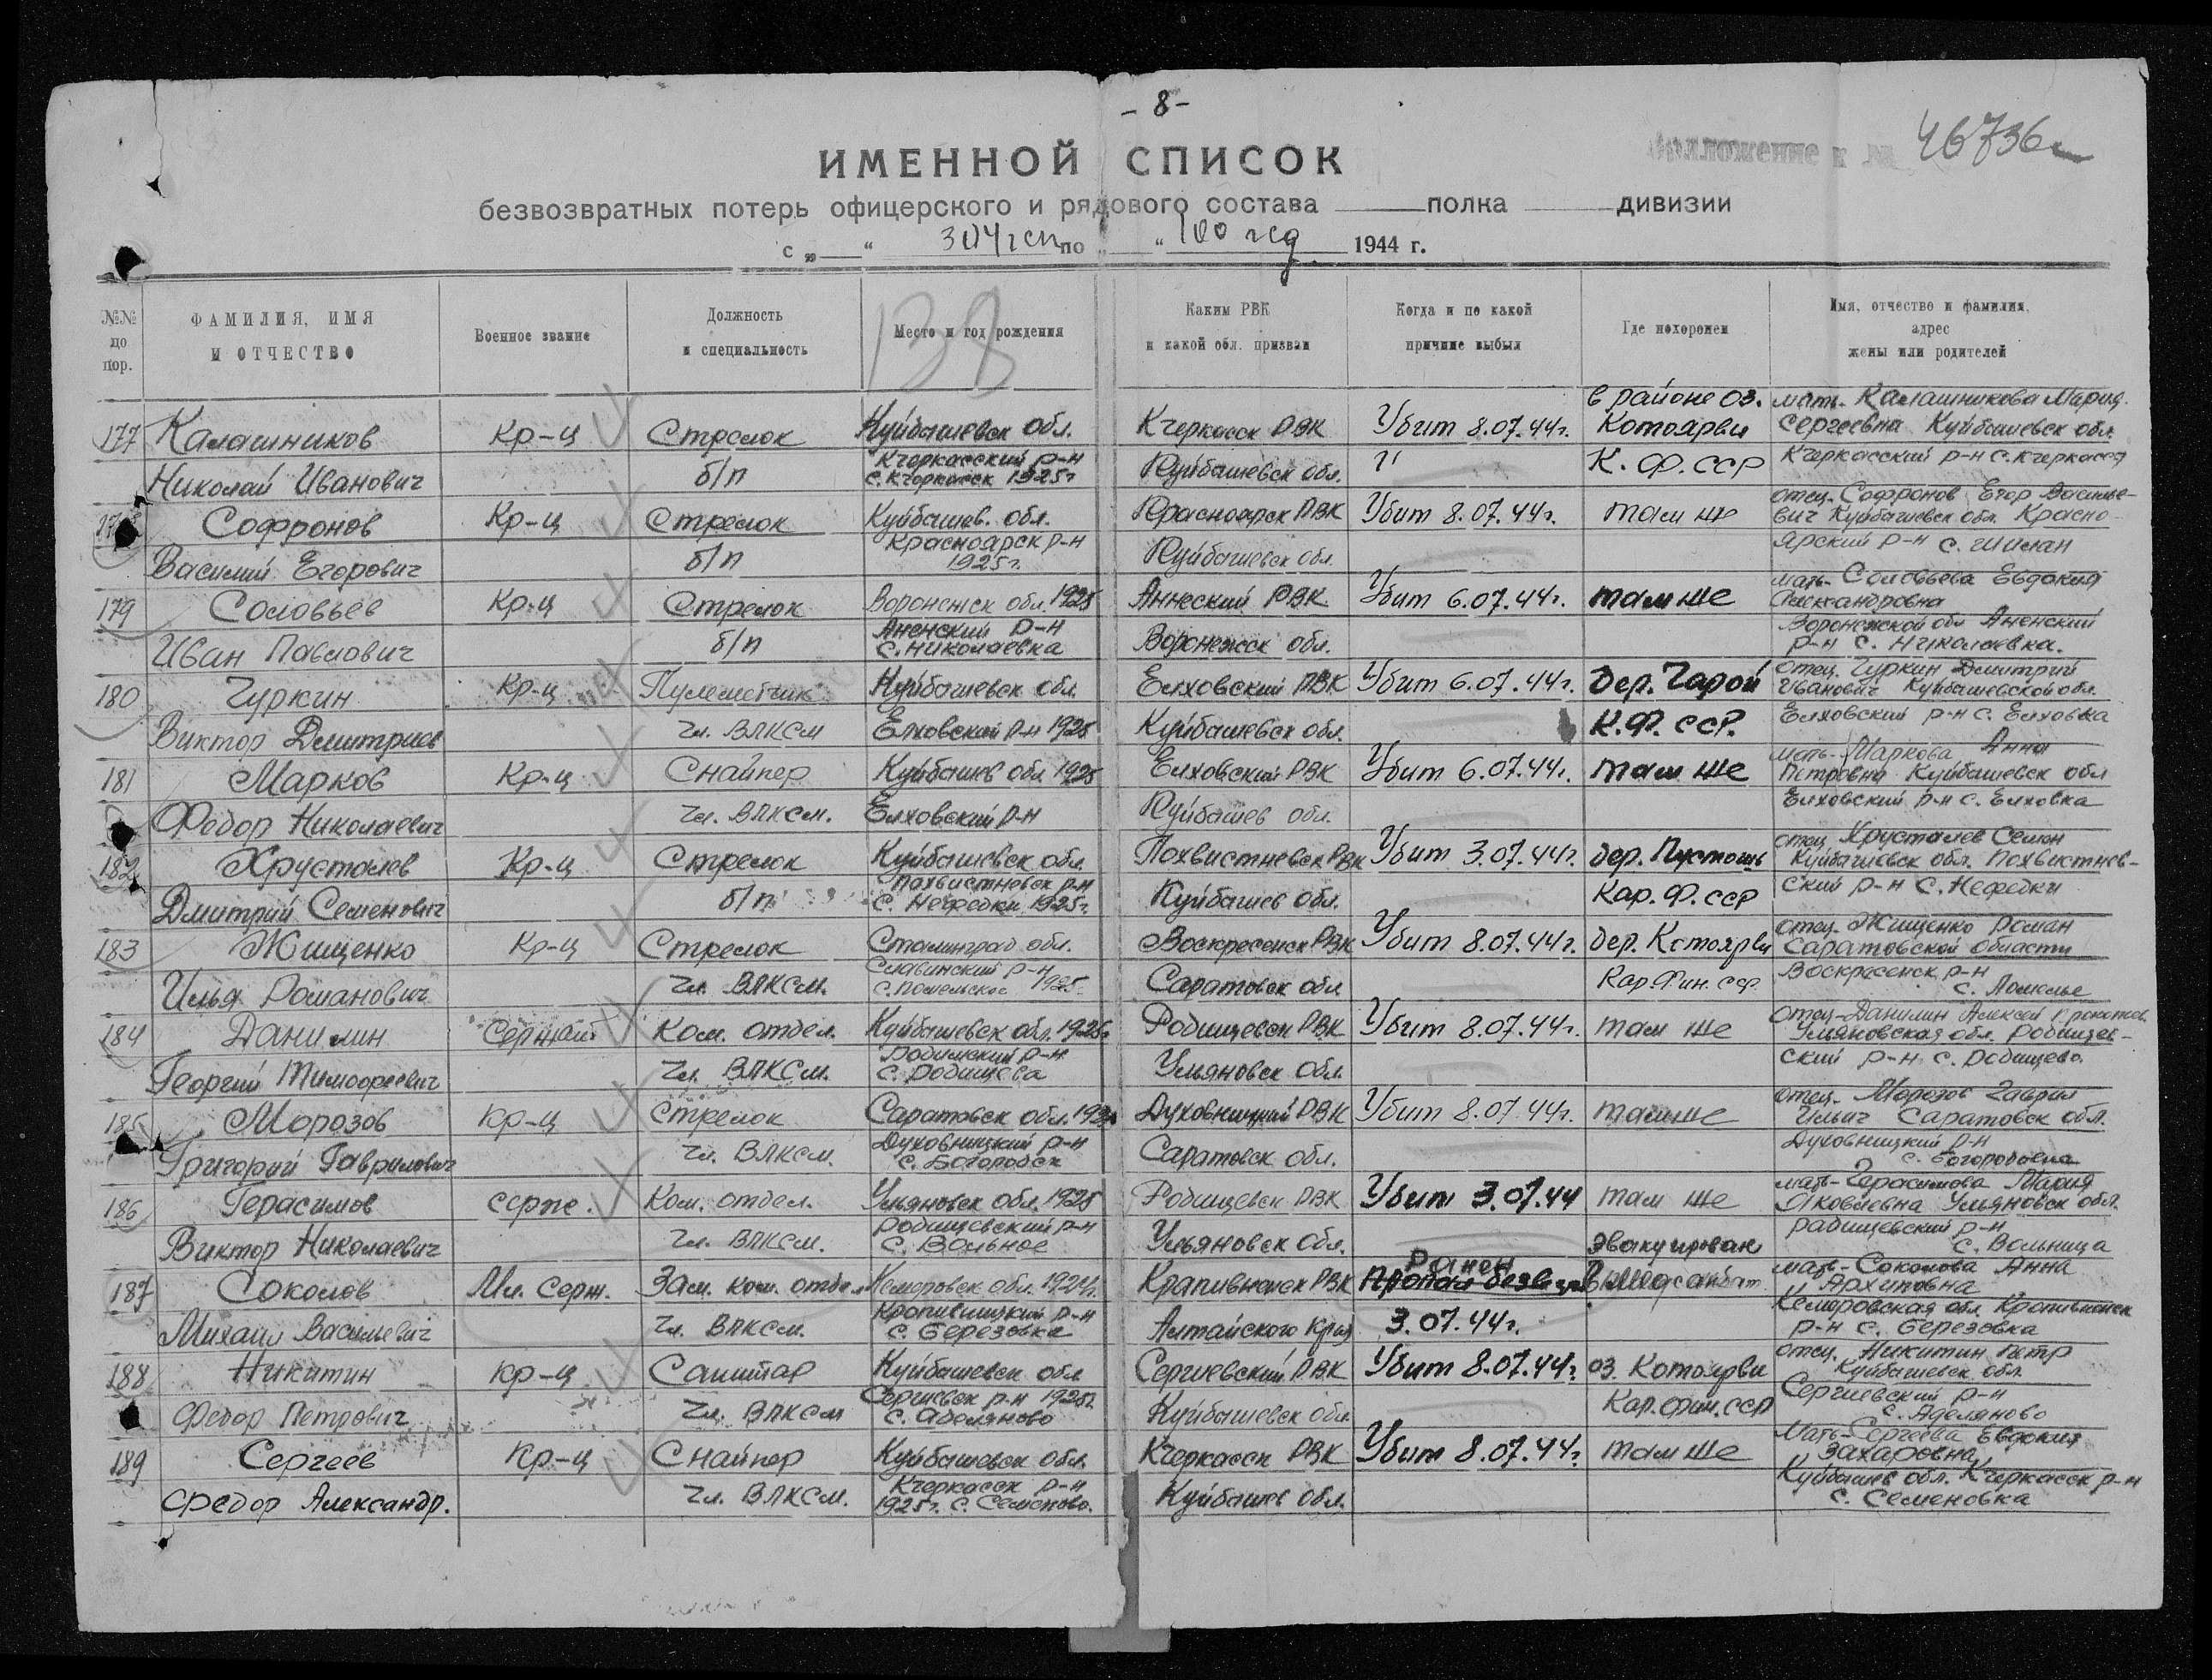 - 8 -
ИМЕННОЙ СПИСОК
Приложение к № 46736с
безвозвратных потерь офицерского и рядового состава полка дивизии
с „ “ 304 гсп по “ 100 гсд 1944 г.
138
№№ по пор.
ФАМИЛИЯ, ИМЯ И ОТЧЕСТВО
Военное звание
Должность и специальность
Место и год рождения
Каким РВК и какой обл. призван
Когда и по какой причине выбыл
Где похоронен
Имя, отчество и фамилия, адрес жены или родителей
177 Калашников Кр-ц Стрелок Куйбышевск обл. Кчеркасск РВК Убит 8.07.44г. в районе оз. Котоярви мать- Калашникова Мария Сергеевна Куйбышевск обл.
Николай Иванович б/п Кчеркасский р-н с. Кчеркасск 1925г Куйбышевск обл. К. Ф. ССР Кчеркасский р-н с. Кчеркассы
178 Софронов Кр-ц Стрелок Куйбышев. обл. Красноярск РВК Убит 8.07.44г. там же отец- Софронов Егор Василье-вич Куйбышевск обл. Красно-
Василий Егорович б/п Красноярск р-н 1925г. Куйбышевск обл. ярский р-н с. Шилан
179 Соловьев Кр-ц Стрелок Воронежск обл. 1925 Аннеский РВК Убит 6.07.44г. там же мать- Соловьева Евдокия Александровна
Иван Павлович б/п Аненский р-н с. Николаевка Воронежск обл. Воронежской обл Аненский р-н с. Николаевка.
180 Чуркин Кр-ц Пулеметчик Куйбышевск обл. Елховский РВК Убит 6.07.44г. дер. Чарой отец- Чуркин Дмитрий Иванович Куйбышевской обл.
Виктор Дмитриев Чл. ВЛКСМ Елховский р-н 1925 Куйбышевск обл. К.Ф. ССР. Елховский р-н с. Елховка
181 Марков Кр-ц Снайпер Куйбышев обл. 1925 Елховский РВК Убит 6.07.44г. там же мать- Маркова Анна Петровна Куйбышевск обл
Федор Николаевич Чл. ВЛКСМ. Елховский р-н Куйбышев обл. Елховский р-н с. Елховка
182 Хрусталев Кр-ц Стрелок Куйбышевск обл. Похвистневск РВК Убит 3.07.44г. дер. Пустошь отец Хрусталев Семен Куйбышевск обл. Похвистнев-
Дмитрий Семенович б/п Похвистневск р-н с. Нефедки 1925г. Куйбышев обл. Кар. Ф. ССР ский р-н с. Нефедки
183 Жищенко Кр-ц Стрелок Сталинград. обл. Воскресенск РВК Убит 8.07.44г. дер. Котоярви отец- Жищенко Роман Саратовской области
Илья Романович Чл. ВЛКСМ. р-н 1925 Саратовск обл Кар. Фин. ССР Воскресенск р-н
184 Данилин Сержант Ком. отдел. Куйбышевск обл. 1925 Родищевск РВК Убит 8.07.44г. там же отец- Данилин Алексей Ульяновская обл. Родищев-
Георгий Тимофеевич Чл. ВЛКСМ. р-н с. Родищева Ульяновск обл. ский р-н с. Родищево.
185 Морозов Кр-ц Стрелок Саратовск обл. Духовницкий РВК Убит 8.07.44г. там же отец- Морозов Гаврил Ильич Саратовск обл.
Григорий Гаврилович Чл. ВЛКСМ. Духовницкий р-н с. Богородск Саратовск обл. Духовницкий р-н
186 Герасимов серже. Ком. отдел. Ульяновск обл. 1925 Родищевск РВК Убит 3.07.44 там же мать- Герасимова Мария Яковлевна Ульяновск обл.
Виктор Николаевич Чл. ВЛКСМ. Родищевский р-н с. Вольное Ульяновск обл. Радищевский р-н с. Вольница
187 Соколов Мл. Серж. Зам. ком. отдел Кемеровск обл. 1924г. Крапивенск РВК Ранен Пропал без вести эвакуирован в медсанбат мать- Соколова Анна Архиповна
Михаил Васильевич Чл. ВЛКСМ. Крапивицкий р-н с. Березовка Алтайского края 3.07.44г. Кемеровская обл. Крапивенск р-н с. Березовка
188 Никитин Кр-ц Санитар Куйбышевск обл Сергиевский РВК Убит 8.07.44г. оз. Котоярви отец. Никитин Петр Куйбышевск обл.
Федор Петрович Чл. ВЛКСМ Сергиевск р-н 1925г. с. Аделяново Куйбышевск обл. Кар. Фин. ССР Сергиевский р-н с. Аделяново
189 Сергеев Кр-ц Снайпер Куйбышевск обл. Кчеркасск РВК Убит 8.07.44г. там же Мать- Сергеева Евдокия Захаровна
Федор Александр. Чл. ВЛКСМ. Кчеркасск р-н 1925г. с. Семеново. Куйбышев обл. Куйбышев обл. Кчеркасск р-н с. Семеновка